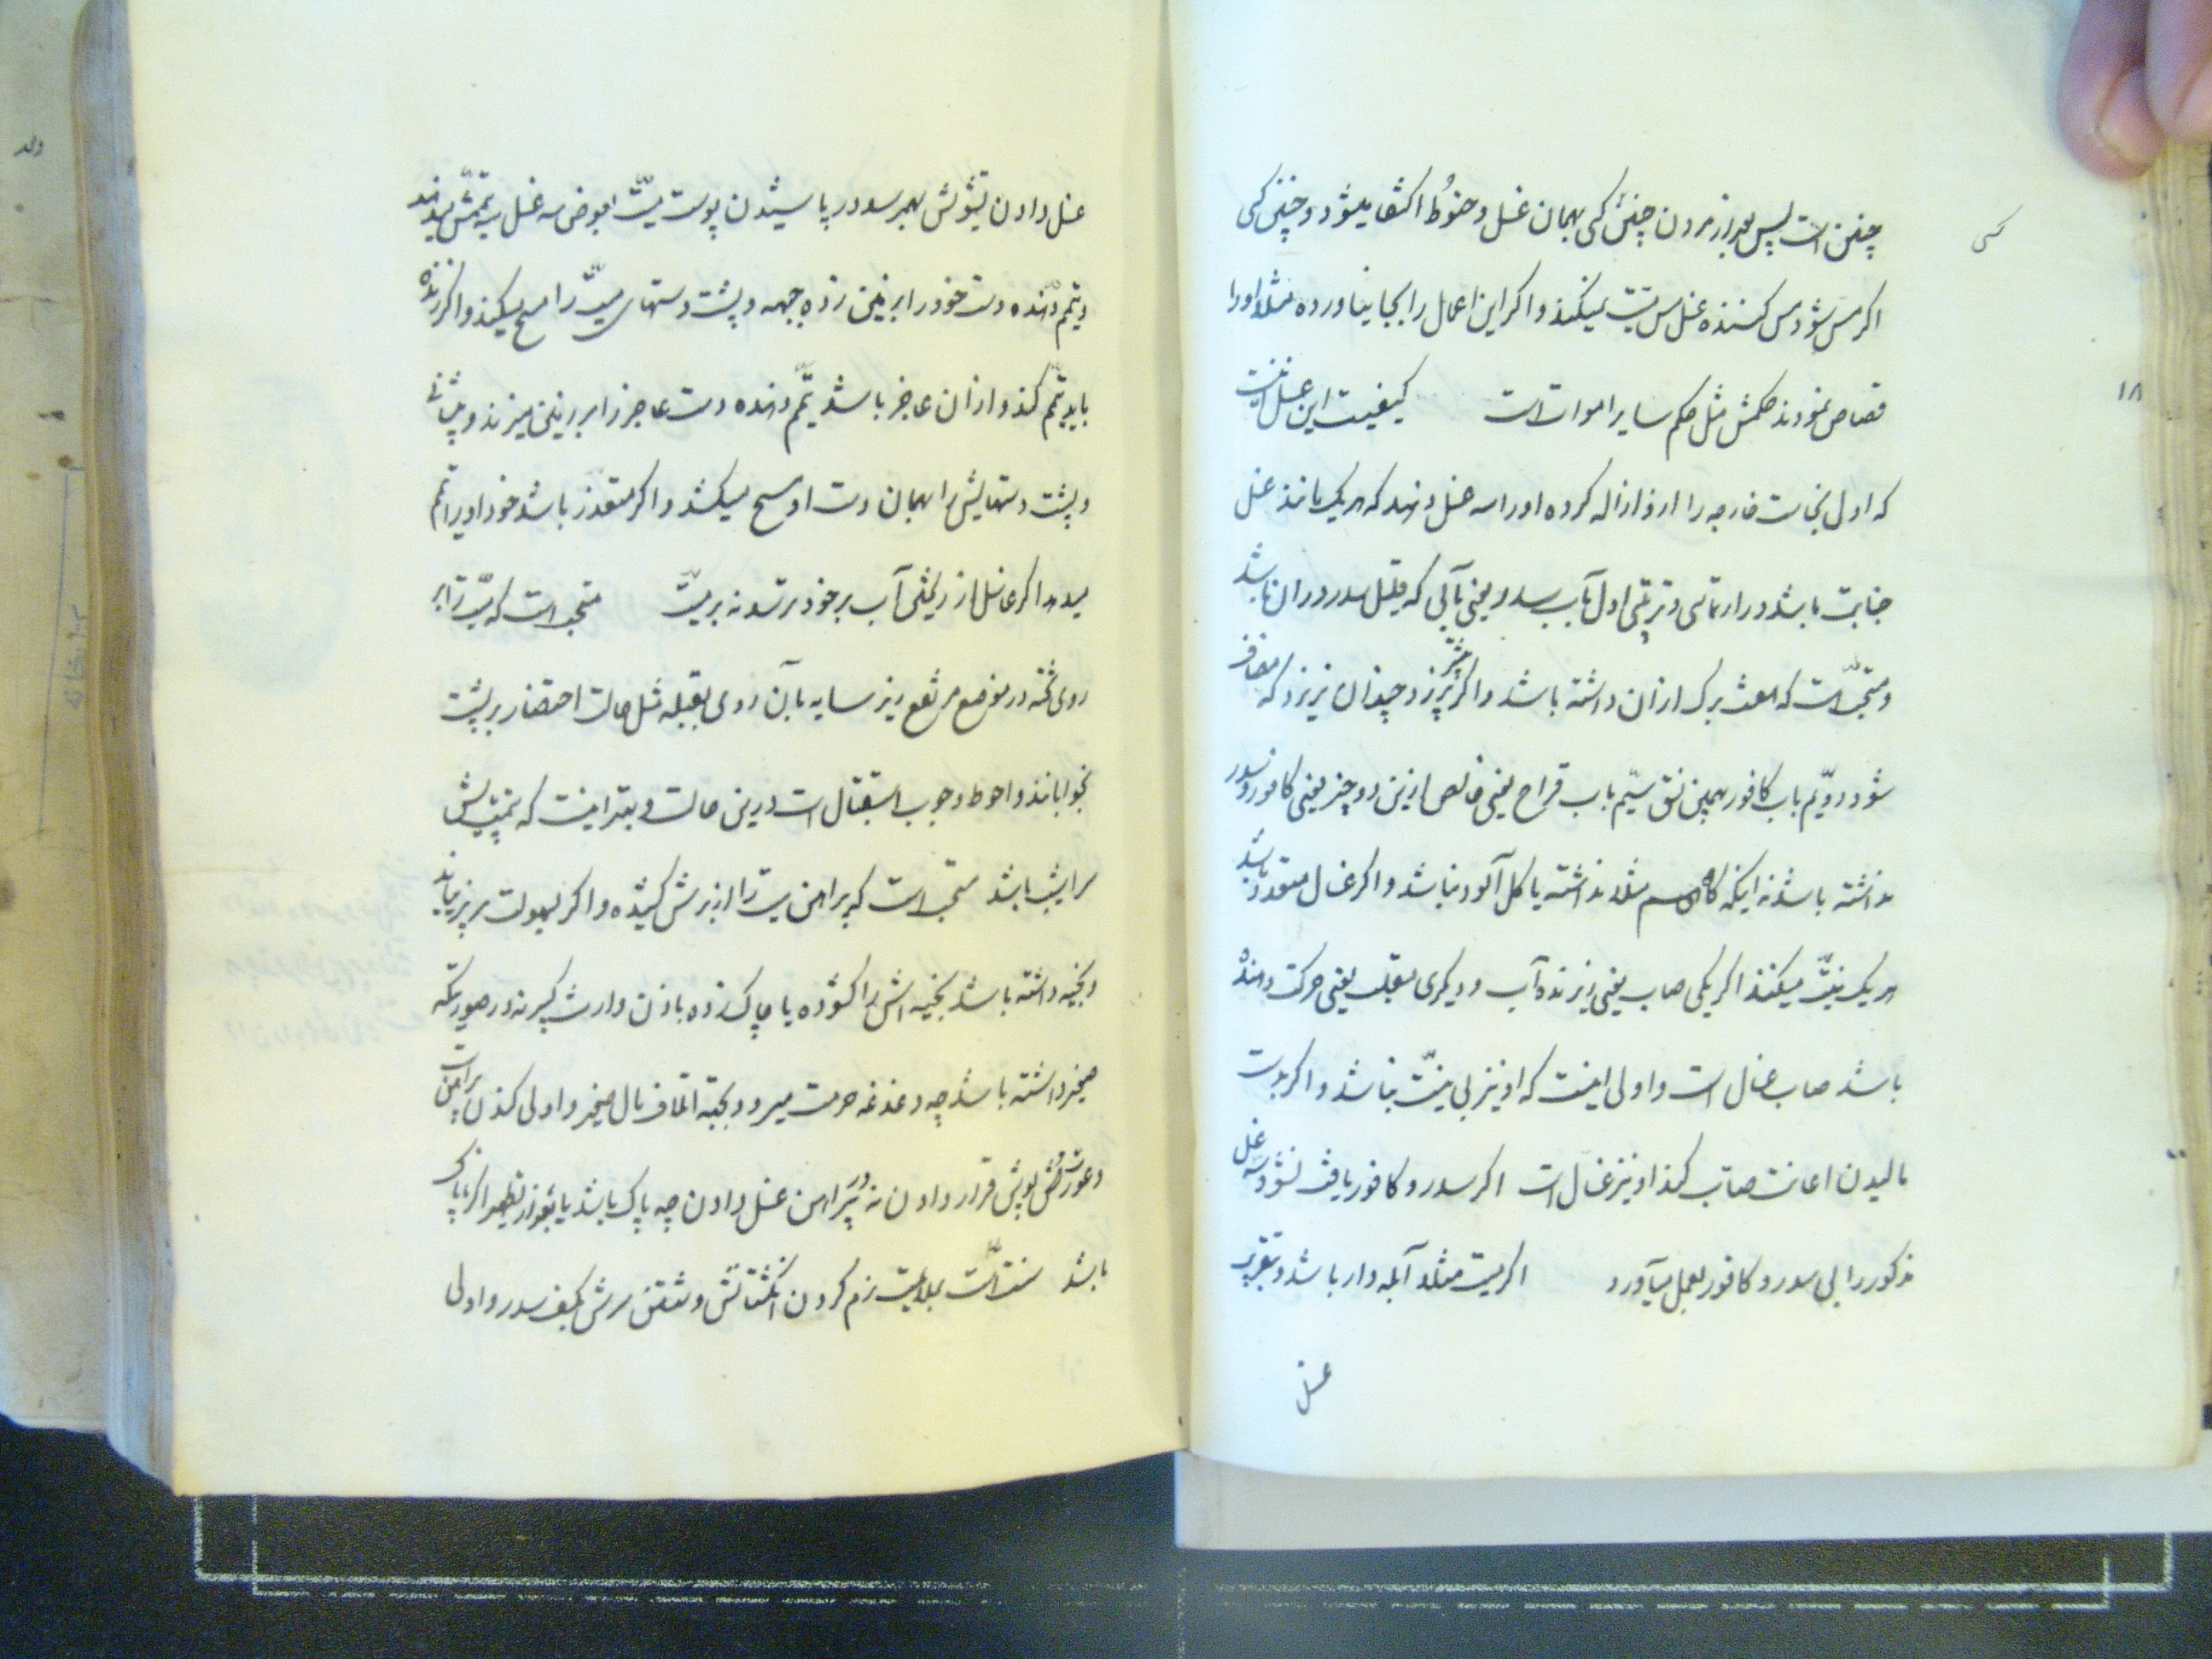 چنین است پس بعد از مردن چنین کسی بهمان غسل و حنوط اکتفا میشود و چنین کسی
کسی
اکر مس شود مس کننده غسل مس میّت نمیکند و اکر این اعمال را بجا نیاورده مثلا او را
۱۸
قصاص نمودند حکمش مثل حکم سایر اموات است کیفیت این غسل اینست
که اول نجاست خارجه را ازو ازاله کرده او را سه غسل دهند که هر یک مانند غسل
جنابت باشد در ارتماسی و ترتیبی اول بآب سدر یعنی بآبی که قلیل سدر در آن باشد
و مستحبّ است که هفت برک ازان داشته باشد و اکر بیشتر ریزد چندان نریزد که مضاف
شود دویّم بآب کافور بهمین نسق سیّم بآب قراح یعنی خالص ازین دو چیز یعنی کافور و سدر
نداشته باشد نه اینکه کاه هم مثلا نداشته یا کل آلود نباشد و اکر غسال متعدد باشد
هر یک نیّت میکنند اکر یکی صاب یعنی ریزنده آب و دیکری مقلب یعنی حرکت دهنده
باشد صاب غسال است و اولی اینست که او نیز بی نیّت نباشد و اکر بدست
مالیدن اعانت صاب کند او نیز غسال است اکر سدر و کافور یافت نشود سه غسل
مذکور را بی سدر و کافور بعمل میآورد اکر میت مثلا آبله دار باشد و بتقریب
غسل
غسل دادن تشویش بهم رسد در پاشیدن پوست میّت بعوض سه غسل سه تیمّمش میدهند
و تیمم دهنده دست خود را بر زمین زده جبهه و پشت دستهای میّت را مسح میکند و اکر زنده
باید تیمّم کند و ازان عاجز باشد تیمّم دهنده دست عاجز را بر زمین میزند و پیشانی
و پشت دستهایش را بهمان دست او مسح میکشد و اکر متعذر باشد خود او را تیمم
میدهد اکر غاسل از ریختن آب بر خود ترسد نه بر میّت مستحب است که میّت را بر
روی تخته در موضع مرتفع زیر سایه بان روی بقبله مثل حالت احتضار بر پشت
بخوابانند و احوط وجوب استقبال است درین حالت و بهتر اینست که سمت پایش
سراشیب باشد مستحب است که پیراهن میت را از زیرش کشیده و اکر بسهولت بر زیر نیاید
و بخیه داشته باشد بخیه اش را کشوده یا چاک زده باذن وارث کبیر نه در صورتیکه
صغیر داشته باشد چه دغدغه حرمت میرود بجهة اتلاف مال صغیر و اولی کندن پیراهن است
و عورتش پوش قرار دادن نه در پیراهن غسل دادن چه پاک باشد یا بعد از تطهیر اکر ناپاک
باشد سنت است بملایمت نرم کردن انکشتانش و شستن سرش بکف سدر و اولی